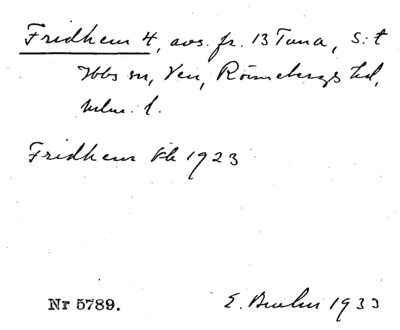 Fridhem 4, avs. fr. 13 Tuna, S:t
Ibbs sn, Ven, Rönnebergs hd,
Malm. l.
Fridhem Jb 1923
Nr 5789.
E. 1933